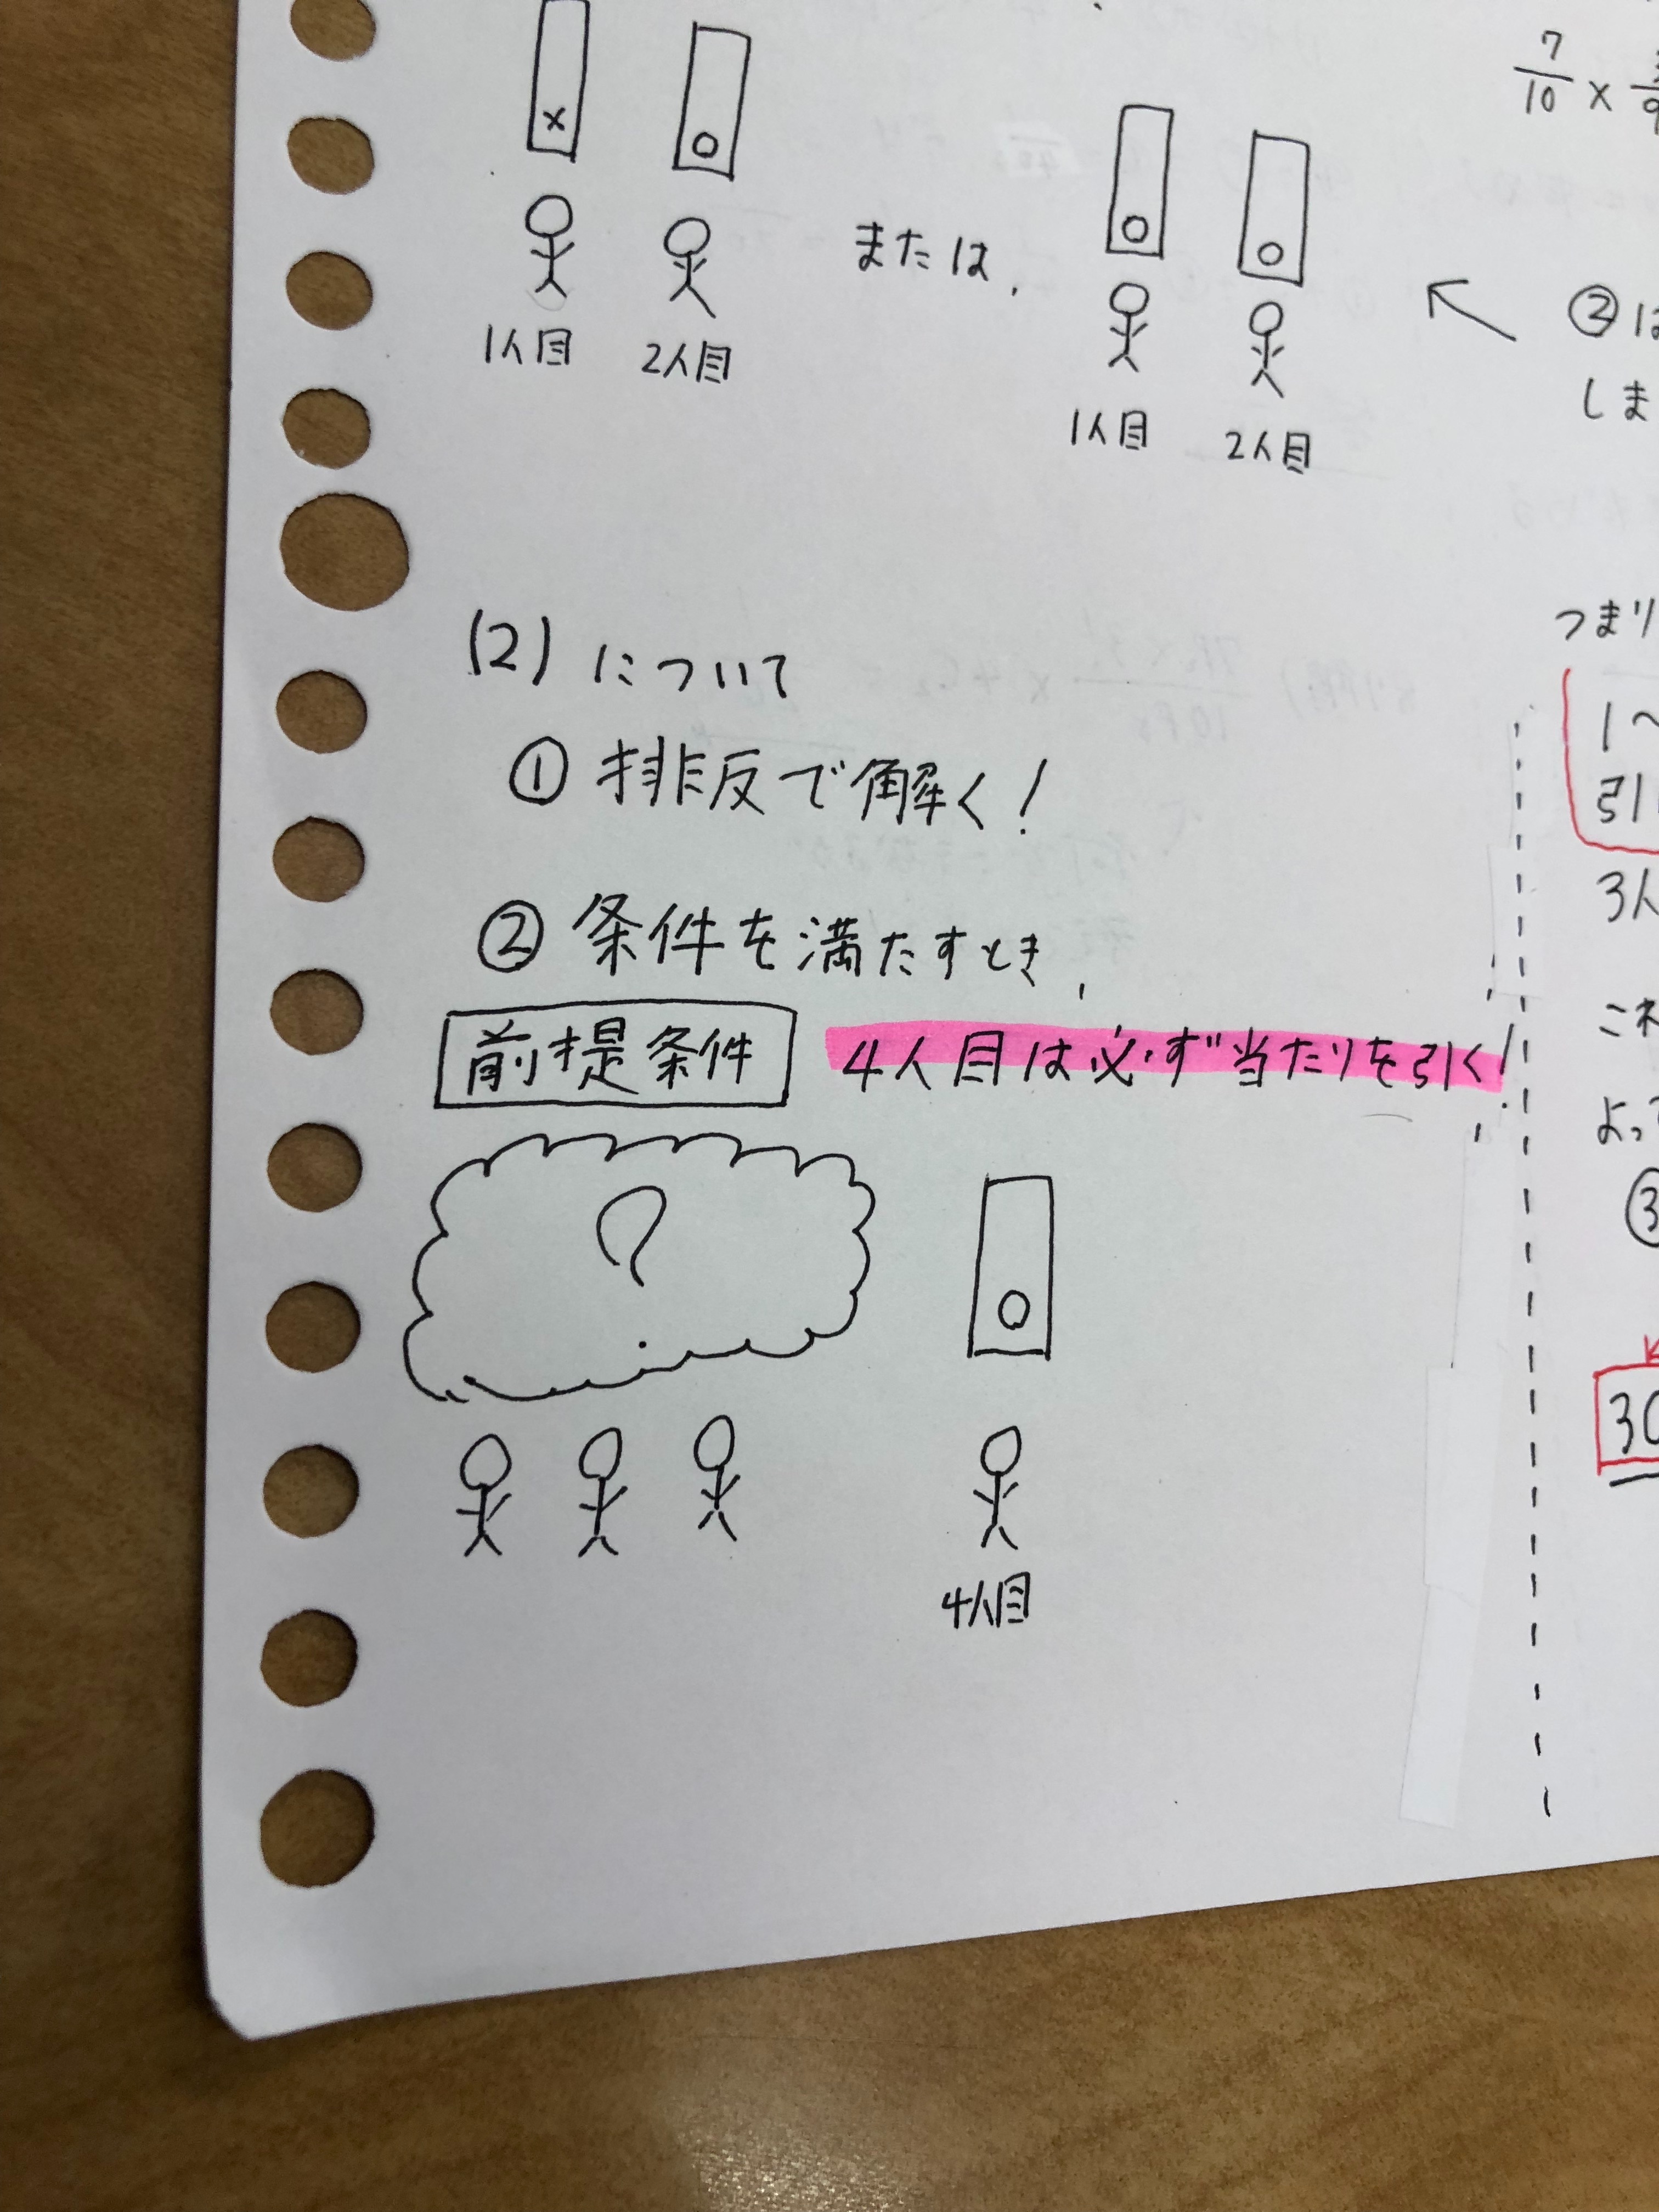 × ○
1人目 2人目
または、
○ ○
1人目 2人目
7/10 ×
②は
しま
(2) について
① 排反で解く!
② 条件を満たすとき、
前提条件 4人目は必ず当たりを引く!
?
○
4人目
つまり
1〜
引
3人
これ
よって
③
30